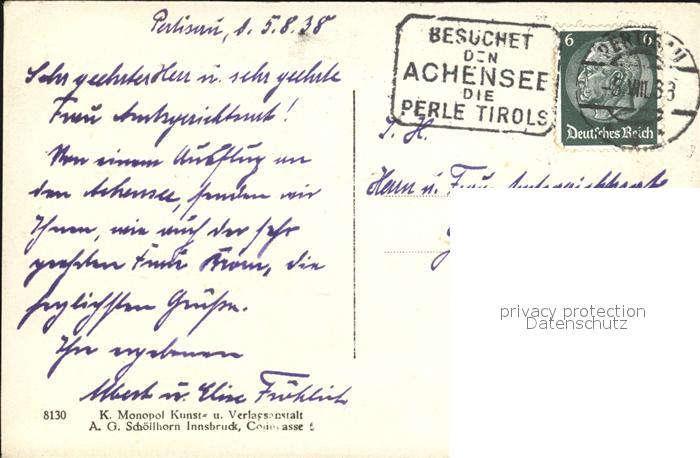 Pertisau, d. 5.8.38
Sehr geehrter Herr u. sehr geehrte
Frau Amtsgerichtsrat!
Von einem Ausflug an
den Achensee, senden wir
Ihnen, wie auch der sehr
geehrten Frau, die
herzlichsten Grüße.
Ihre ergebenen
Albert u. Elise Fröhlich
8130 K. Monopol Kunst- u. Verlagsanstalt
A. G. Schöllhorn Innsbruck,
BESUCHET
DEN
ACHENSEE
DIE
PERLE TIROLS
6 6
Deutsches Reich
VIII.
S. H.
Herrn u. Frau Amtsgerichtsrat
privacy protection
Datenschutz